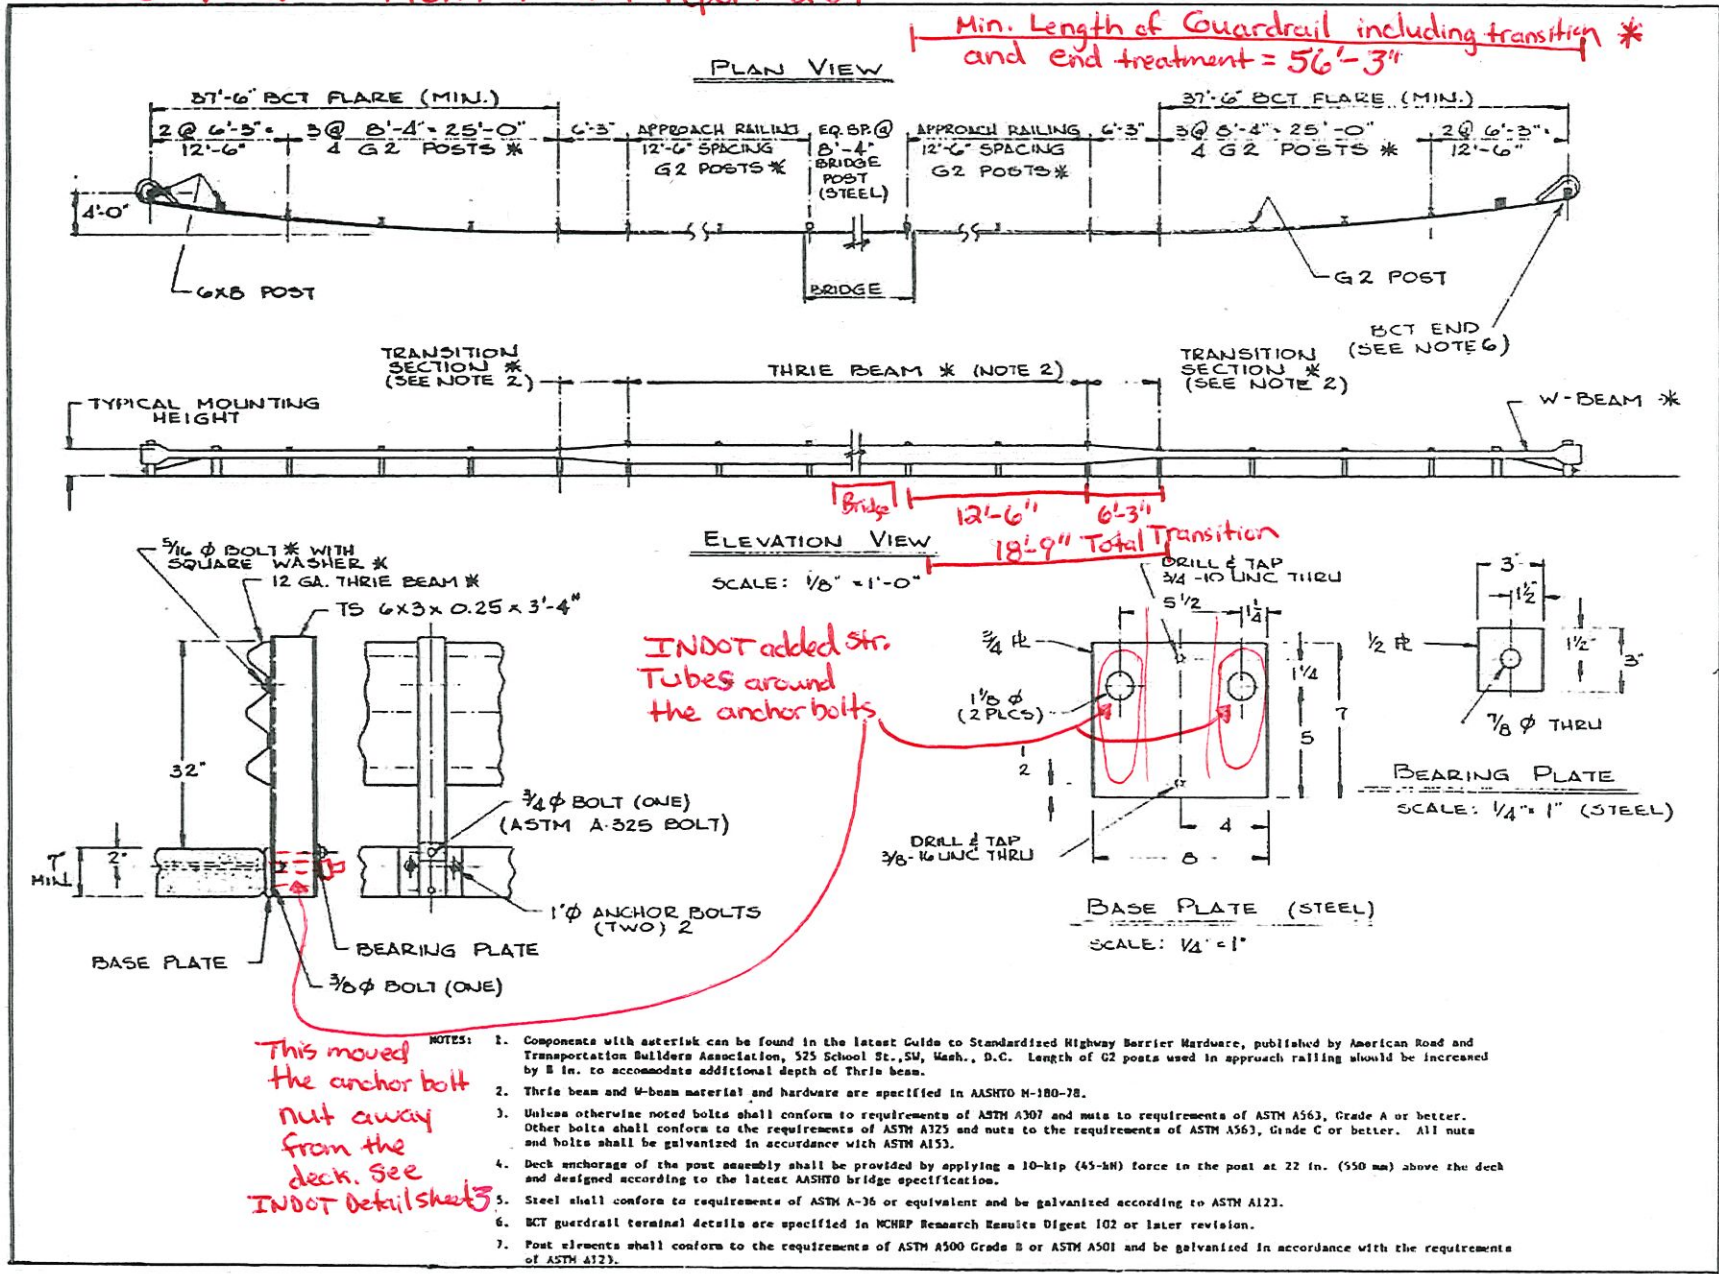 Min. Length of Guardrail including transition *
and end treatment = 56'-3"
PLAN VIEW
37'-6" BCT FLARE (MIN.)
37'-6" BCT FLARE (MIN.)
2 @ 6'-3" =
12'-6"
3 @ 8'-4" = 25'-0"
4 G2 POSTS *
6'-3"
APPROACH RAILING
12'-6" SPACING
G2 POSTS *
EQ. SP. @
8'-4"
BRIDGE
POST
(STEEL)
APPROACH RAILING
12'-6" SPACING
G2 POSTS *
6'-3"
3 @ 8'-4" = 25'-0"
4 G2 POSTS *
2 @ 6'-3" =
12'-6"
4'-0"
6X8 POST
BRIDGE
G2 POST
BCT END
(SEE NOTE 6)
TRANSITION
SECTION *
(SEE NOTE 2)
THRIE BEAM * (NOTE 2)
TRANSITION
SECTION *
(SEE NOTE 2)
TYPICAL MOUNTING
HEIGHT
W-BEAM *
Bridge
12'-6"
6'-3"
18'-9" Total Transition
ELEVATION VIEW
SCALE: 1/8" = 1'-0"
5/16 Φ BOLT * WITH
SQUARE WASHER *
12 GA. THRIE BEAM *
TS 6X3 X 0.25 X 3'-4"
32"
2"
7"
MIN.
3/4 Φ BOLT (ONE)
(ASTM A-325 BOLT)
1"Φ ANCHOR BOLTS
(TWO) 2
BASE PLATE
BEARING PLATE
3/8 Φ BOLT (ONE)
INDOT added str.
Tubes around
the anchor bolts
DRILL & TAP
3/4 -10 UNC THRU
5 1/2
1 1/4
3/4 PL
1 1/8 Φ
(2 PLCS)
1 1/4
5
7
1
2
4
8
DRILL & TAP
3/8-16 UNC THRU
BASE PLATE (STEEL)
SCALE: 1/4" = 1"
3"
1 1/2"
1/2 PL
1 1/2"
3"
7/8 Φ THRU
BEARING PLATE
SCALE: 1/4" = 1" (STEEL)
This moved
the anchor bolt
nut away
from the
deck. See
INDOT Detail sheet 3
NOTES: 1. Components with asterisk can be found in the latest Guide to Standardized Highway Barrier Hardware, published by American Road and
Transportation Builders Association, 525 School St.,SW, Wash., D.C. Length of G2 posts used in approach railing should be increased
by 8 in. to accommodate additional depth of Thrie beam.
2. Thrie beam and W-beam material and hardware are specified in AASHTO M-180-78.
3. Unless otherwise noted bolts shall conform to requirements of ASTM A307 and nuts to requirements of ASTM A563, Grade A or better.
Other bolts shall conform to the requirements of ASTM A325 and nuts to the requirements of ASTM A563, Grade C or better. All nuts
and bolts shall be galvanized in accordance with ASTM A153.
4. Deck anchorage of the post assembly shall be provided by applying a 10-kip (45-kN) force to the post at 22 in. (550 mm) above the deck
and designed according to the latest AASHTO bridge specification.
5. Steel shall conform to requirements of ASTM A-36 or equivalent and be galvanized according to ASTM A123.
6. BCT guardrail terminal details are specified in NCHRP Research Results Digest 102 or later revision.
7. Post elements shall conform to the requirements of ASTM A500 Grade B or ASTM A501 and be galvanized in accordance with the requirements
of ASTM A123.